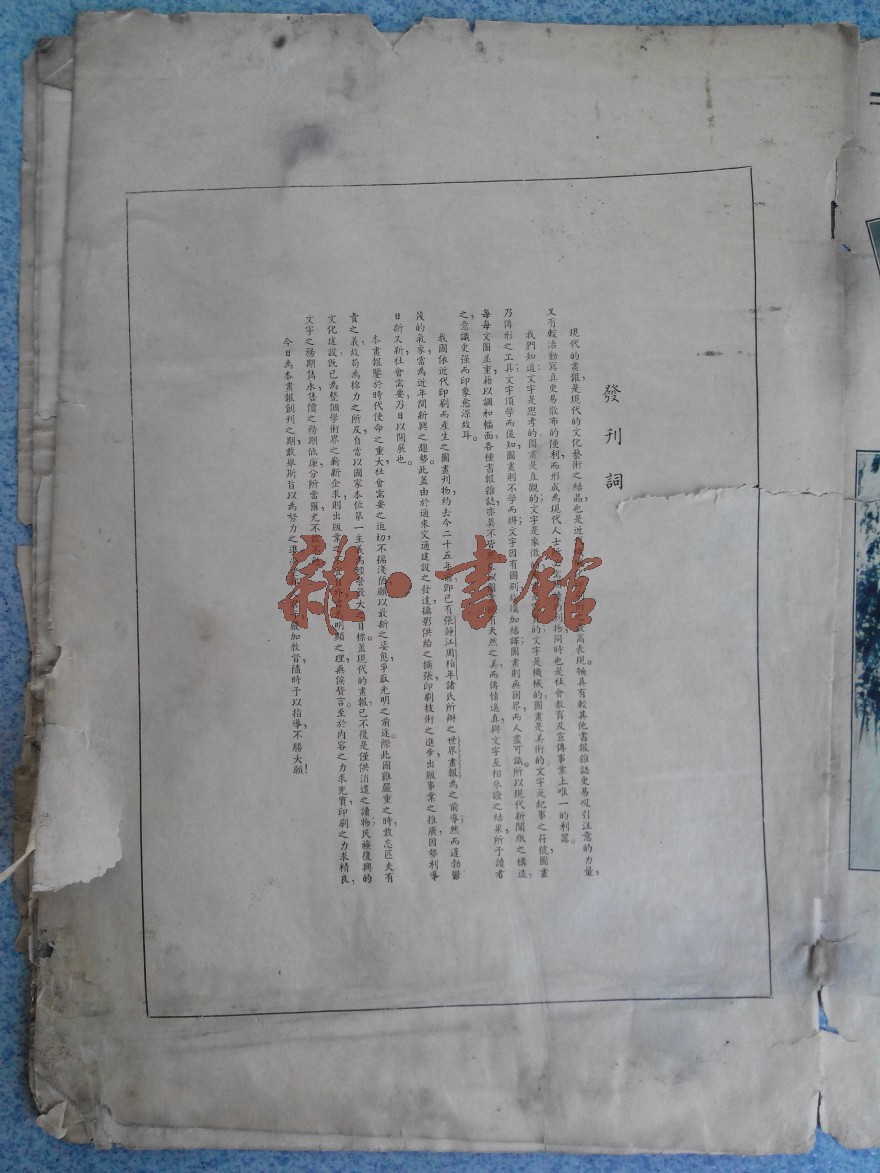 發刊詞
現代的畫報,是現代的文化藝術之結晶,也是近 最高表現。牠具有較其他書報雜誌更易吸引注意的力量,
又有較活動寫真更易散布的便利,而形成為現代人士 刊物,同時也是社會教育及宣傳事業上唯一的利器。
我們知道:文字是思考的,圖畫是直觀的;文字是象徵的, 的;文字是機械的,圖畫是美術的;文字是紀事之符號,圖畫
乃傳形之工具;文字須學而後知,圖畫則不學而辨;文字因有國別,故須加繙譯,圖畫則無國界,而人盡可識。所以現代新聞紙之構造,
每每文圖並重,藉以調和幅面,各種書報雜誌,亦莫不 有天然之美,而傳情逼真,與文字互相參證之結果,所予讀者
之意識更强而印象愈深故耳。
我國依近代印刷而產生之圖畫刊物,約去今二十五年前,即已有張靜江周柏年諸氏所辦之世界畫報為之前導,然而蓬勃鬱
茂的氣象,當為近年間新興之趨勢。此蓋由於邇來交通建設之發達,攝影供給之擴張,印刷技術之進步,出版事業之推廣,因勢利導
日新又新,社會需要,乃日以開展也。
本畫報鑒於時代使命之重大,社會需要之迫切,不揣淺陋,願以最新之姿態,爭啟光明之前途。際此國難嚴重之時,敢忘匹夫有
責之義,故苟為棉力之所及,自當以國家本位第一主義為經營最大之目標。蓋現代的畫報,已不復是僅供消遣之讀物;民族復興的
文化建設,既已為整個學術界之嶄新企求,則出版業之 明顯之理,無俟贅言。至於內容之力求充實,印刷之力求精良,
文字之務期雋永,售價之務期低廉,分所當爾,尤不敢不
今日為本畫報創刊之期,敢舉斯旨以為努力之準 嚴加教督,隨時予以指導,不勝大願!
雜·書館